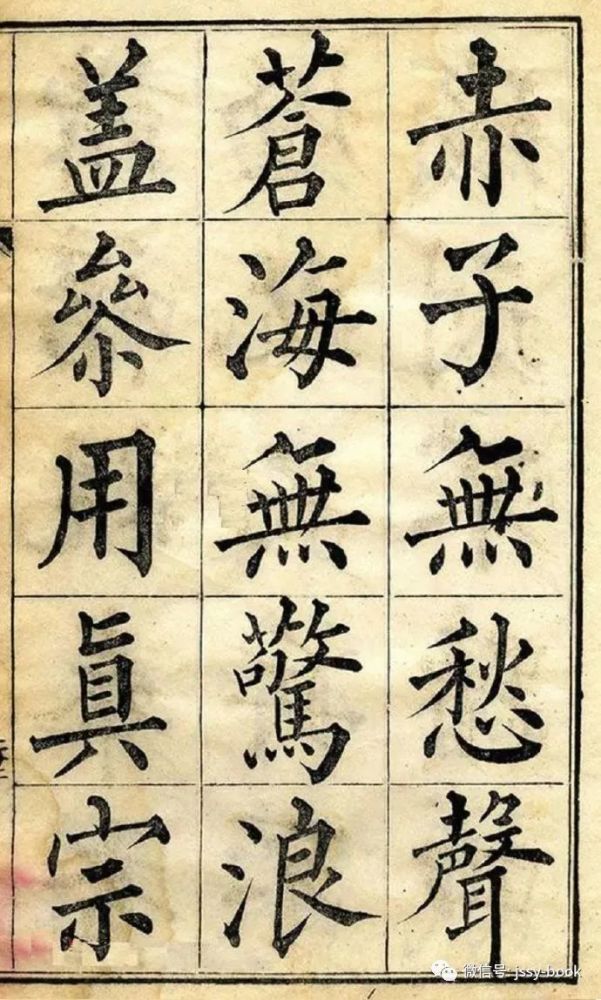 赤子無愁聲
蒼海無驚浪
盖叅用眞宗
微信号: jssy-book